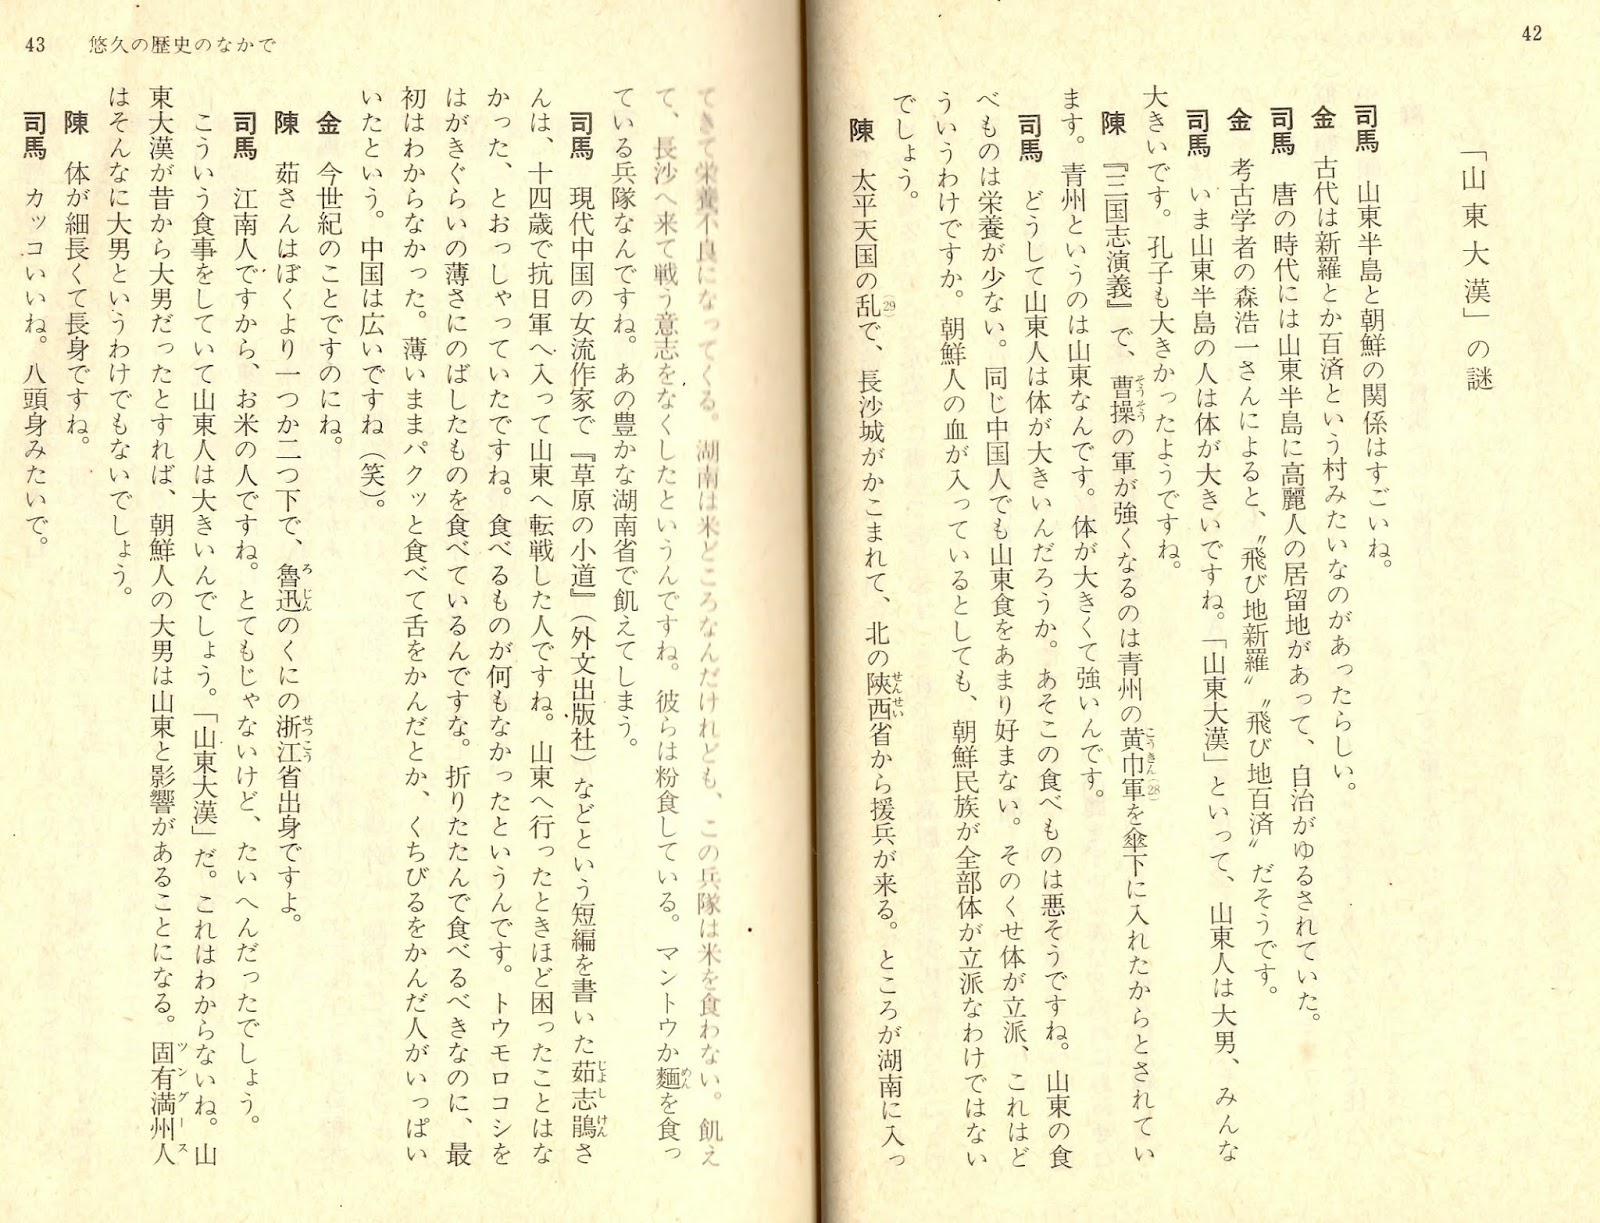 42
「山東大漢」の謎
司馬　山東半島と朝鮮の関係はすごいね。
金　古代は新羅とか百済という村みたいなのがあったらしい。
司馬　唐の時代には山東半島に高麗人の居留地があって、自治がゆるされていた。
金　考古学者の森浩一さんによると、〝飛び地新羅〟〝飛び地百済〟だそうです。
司馬　いま山東半島の人は体が大きいですね。「山東大漢」といって、山東人は大男、みんな
大きいです。孔子も大きかったようですね。
陳　『三国志演義』で、曹操の軍が強くなるのは青州の黄巾軍を傘下に入れたからとされてい
ます。青州というのは山東なんです。体が大きくて強いんです。
司馬　どうして山東人は体が大きいんだろうか。あそこの食べものは悪そうですね。山東の食
べものは栄養が少ない。同じ中国人でも山東食をあまり好まない。そのくせ体が立派、これはど
ういうわけですか。朝鮮人の血が入っているとしても、朝鮮民族が全部体が立派なわけではない
でしょう。
陳　太平天国の乱で、長沙城がかこまれて、北の陝西省から援兵が来る。ところが湖南に入っ
43　悠久の歴史のなかで
てきて栄養不良になってくる。湖南は米どころなんだけれども、この兵隊は米を食わない。飢え
て、長沙へ来て戦う意志をなくしたというんですね。彼らは粉食している。マントウか麵を食っ
ている兵隊なんですね。あの豊かな湖南省で飢えてしまう。
司馬　現代中国の女流作家で『草原の小道』（外文出版社）などという短編を書いた茹志鵑さ
んは、十四歳で抗日軍へ入って山東へ転戦した人ですね。山東へ行ったときほど困ったことはな
かった、とおっしゃっていたですね。食べるものが何もなかったというんです。トウモロコシを
はがきぐらいの薄さにのばしたものを食べているんですな。折りたたんで食べるべきなのに、最
初はわからなかった。薄いままパクッと食べて舌をかんだとか、くちびるをかんだ人がいっぱい
いたという。中国は広いですね（笑）。
金　今世紀のことですのにね。
陳　茹さんはぼくより一つか二つ下で、魯迅のくにの浙江省出身ですよ。
司馬　江南人ですから、お米の人ですね。とてもじゃないけど、たいへんだったでしょう。
こういう食事をしていて山東人は大きいんでしょう。「山東大漢」だ。これはわからないね。山
東大漢が昔から大男だったとすれば、朝鮮人の大男は山東と影響があることになる。固有満州人
はそんなに大男というわけでもないでしょう。
陳　体が細長くて長身ですね。
司馬　カッコいいね。八頭身みたいで。